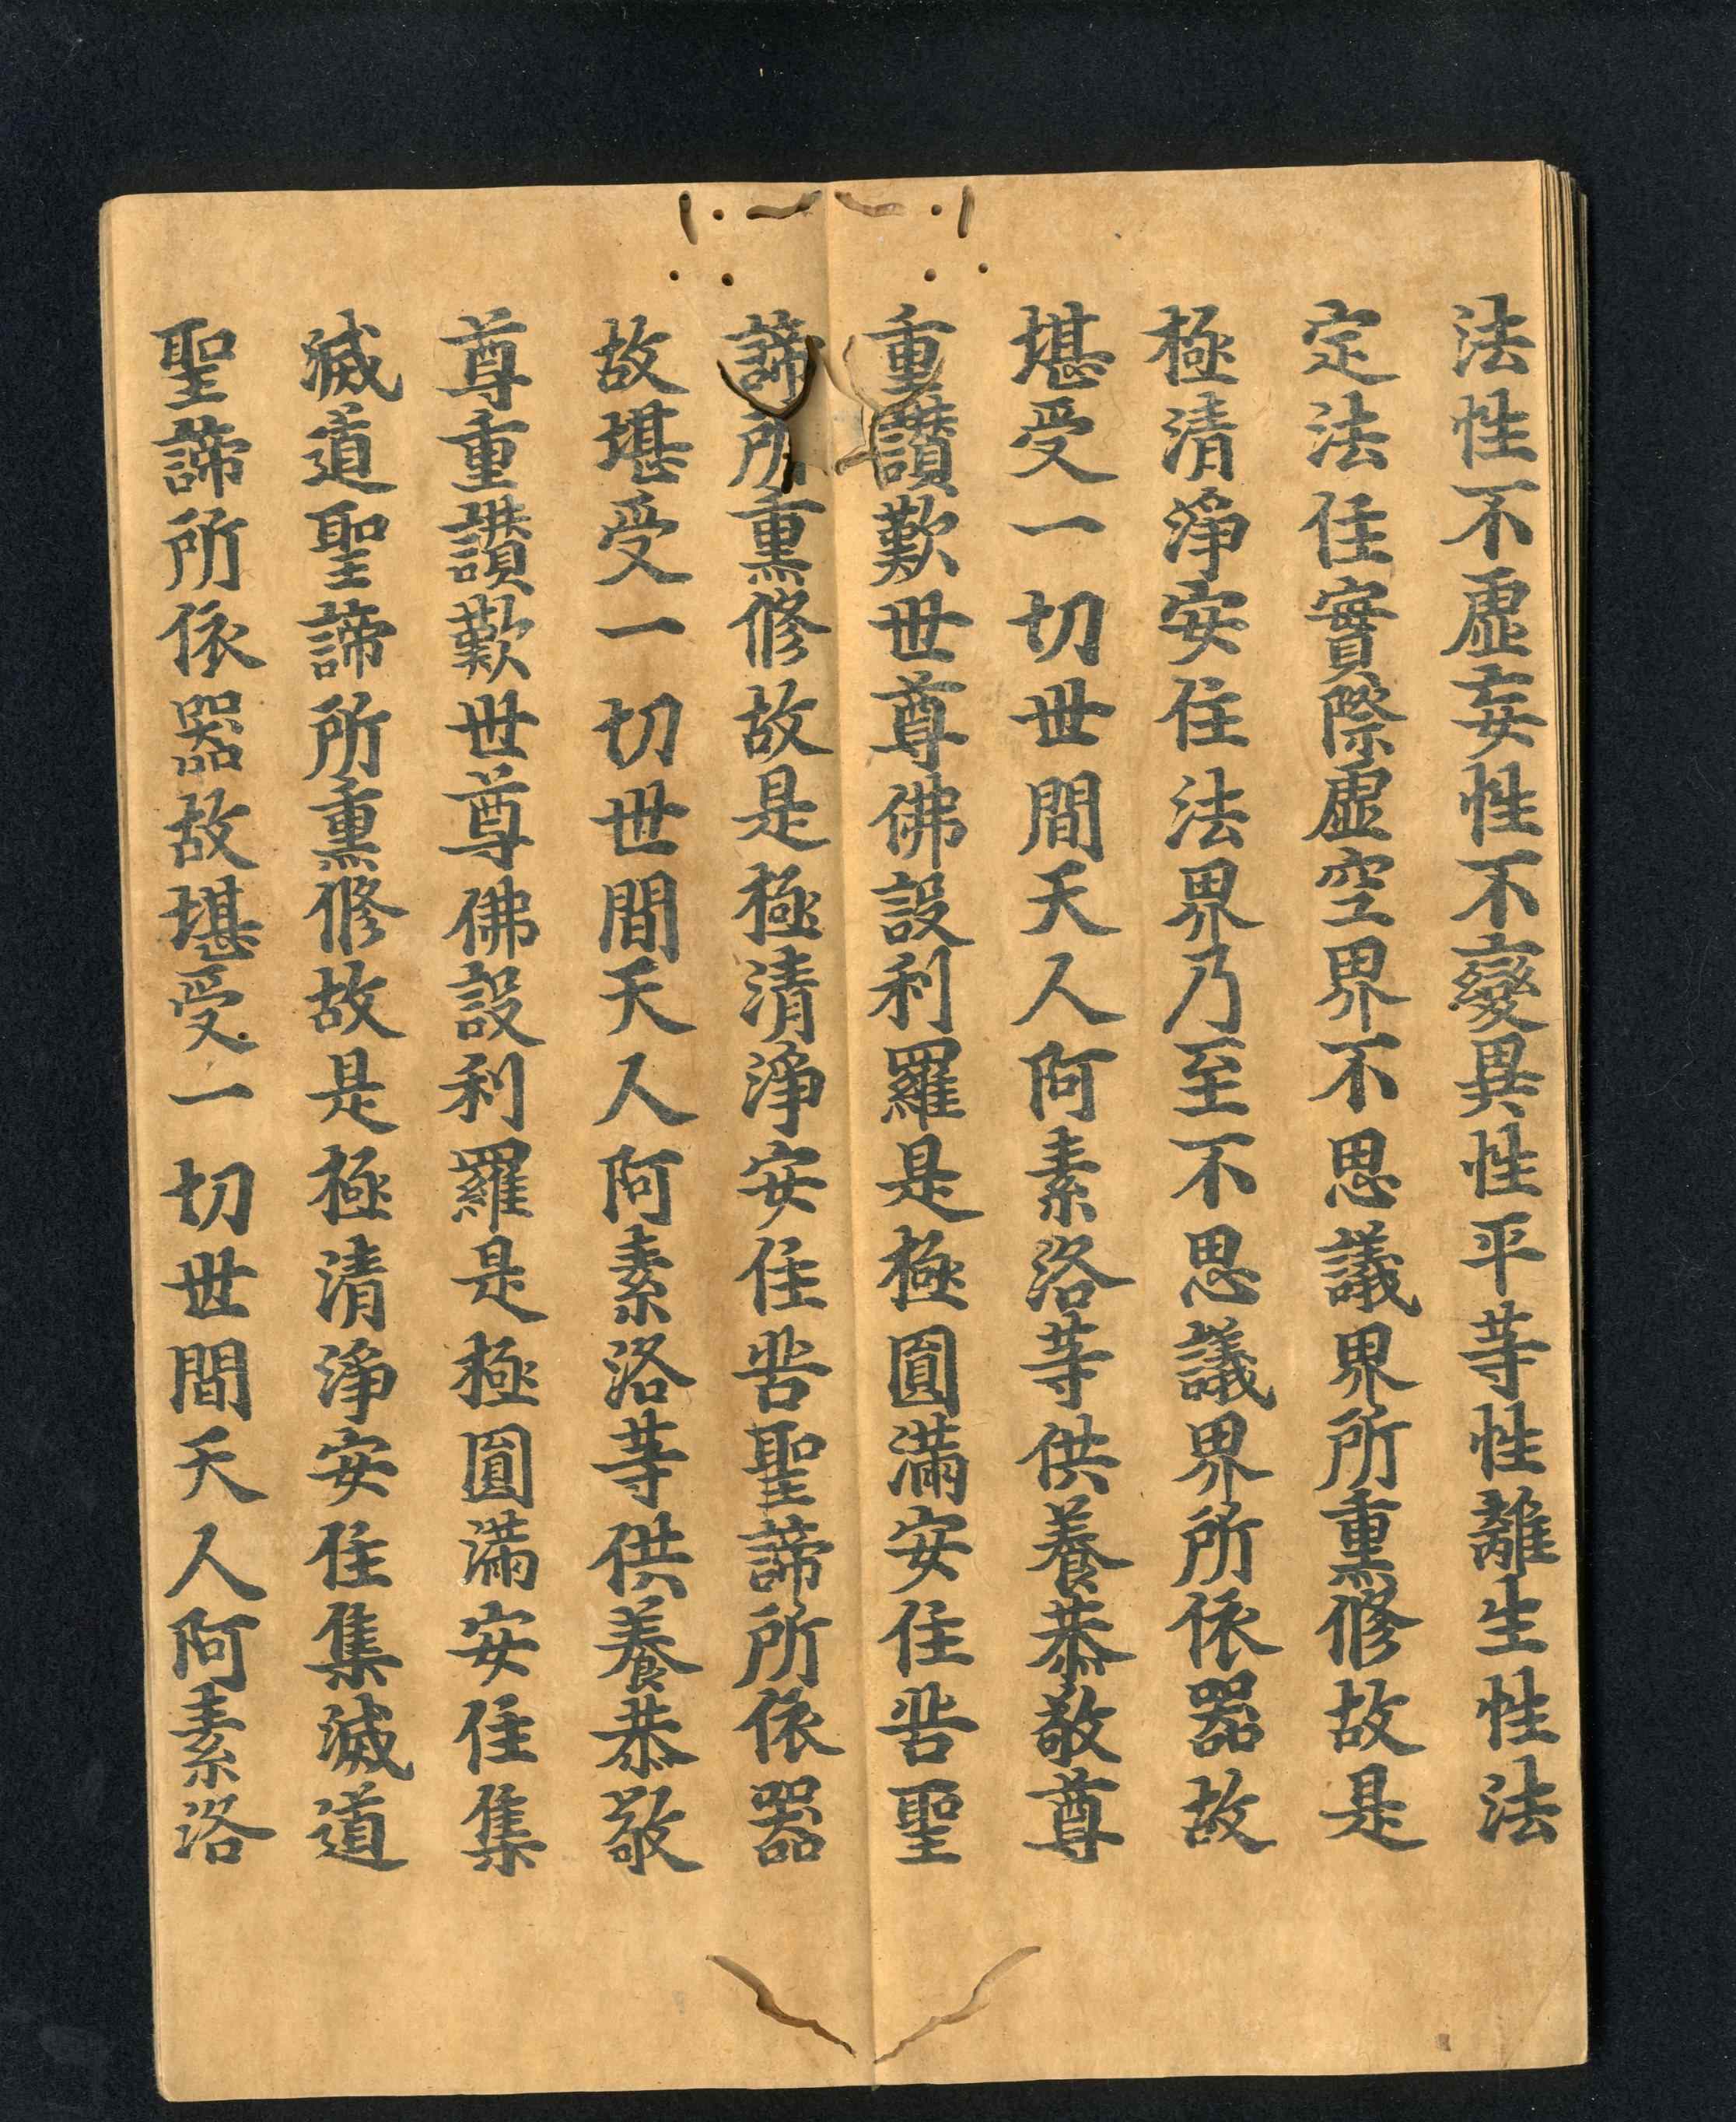 法性不虛妄性不變異性平等性離生性法
定法住實際虛空界不思議界所熏修故是
極清淨安住法界乃至不思議界所依器故
堪受一切世間天人阿素洛等供養恭敬尊
重讚歎世尊佛設利羅是極圓滿安住苦聖
諦所熏修故是極清淨安住苦聖諦所依器
故堪受一切世間天人阿素洛等供養恭敬
尊重讚歎世尊佛設利羅是極圓滿安住集
滅道聖諦所熏修故是極清淨安住集滅道
聖諦所依器故堪受一切世間天人阿素洛